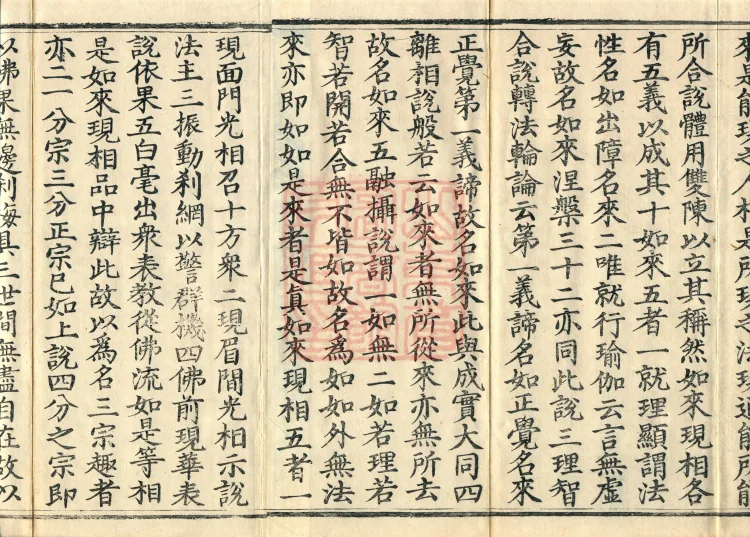 來是能現之人相是所現之法現通能所能
所合說體用雙陳以立其稱然如來現相各
有五義以成其十如來五者一就理顯謂法
性名如出障名來二唯就行瑜伽云言無虛
妄故名如來涅槃三十二亦同此說三理智
合說轉法輪論云第一義諦名如正覺名來
正覺第一義諦故名如來此與成實大同四
離相說般若云如來者無所從來亦無所去
故名如來五融攝說謂一如無二如若理若
智若開若合無不皆如故名為如如外無法
來亦即如如是來者是真如來現相五者一
現面門光相召十方衆二現眉間光相示說
法主三振動刹網以警群機四佛前現華表
說依果五白毫出衆表教從佛流如是等相
是如來現相品中辯此故以為名三宗趣者
亦二一分宗三分正宗已如上說四分之宗即
以佛果無邊刹海具三世間無盡自在故以